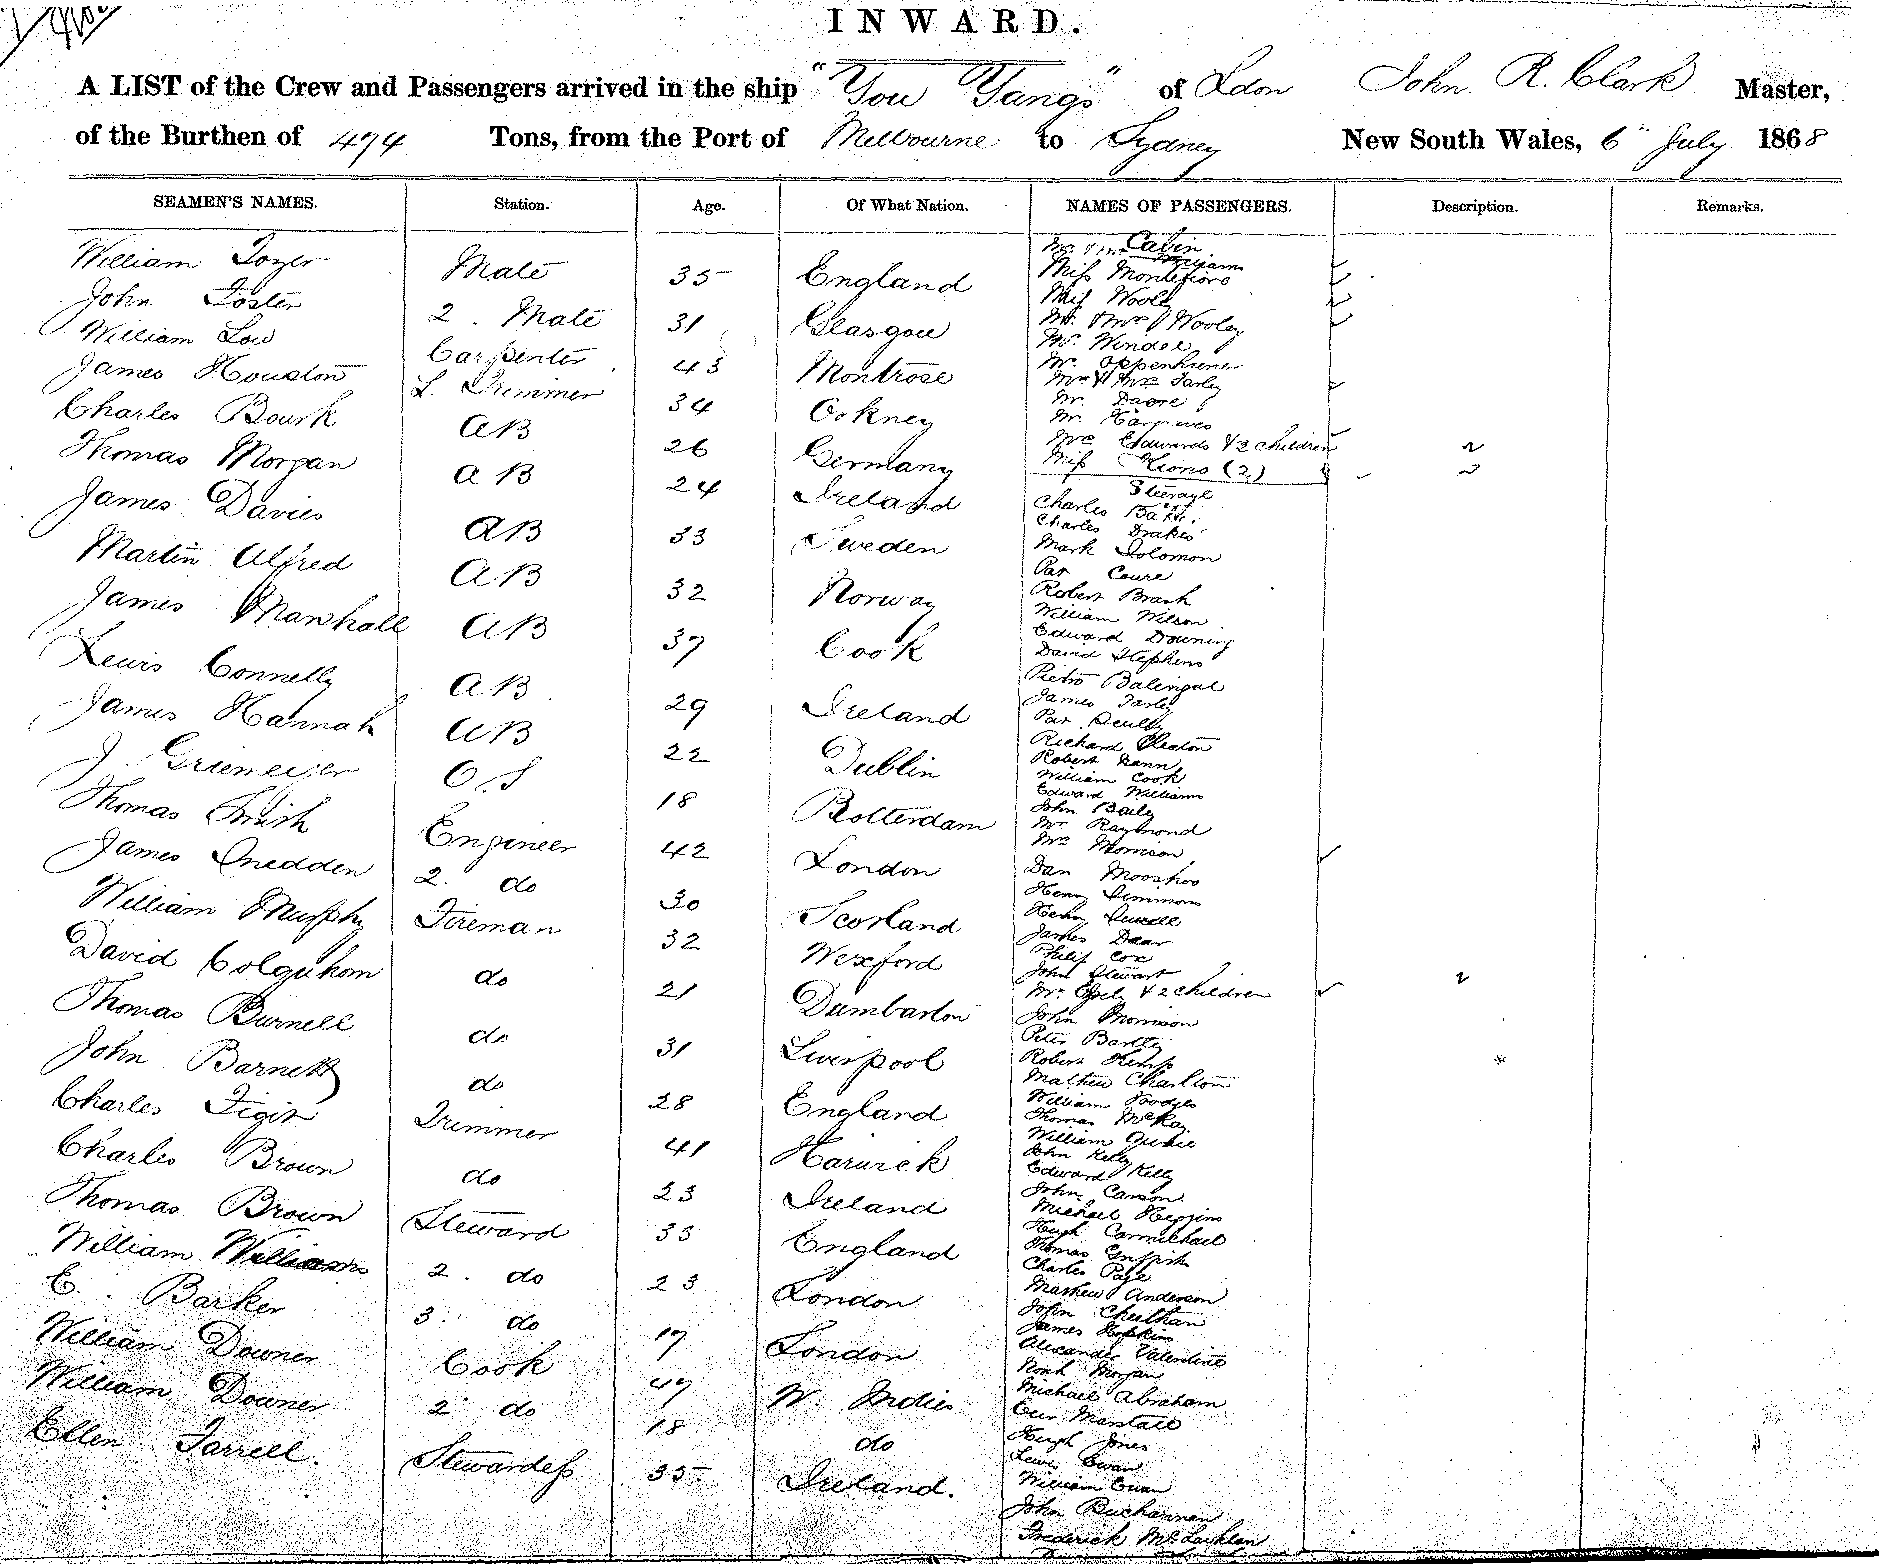 INWARD.
A LIST of the Crew and Passengers arrived in the ship "You Yangs" of Ldon John R. Clark Master,
of the Burthen of 474 Tons, from the Port of Melbourne to Sydney New South Wales, 6" July 1868
SEAMEN'S NAMES. Station. Age. Of What Nation. NAMES OF PASSENGERS. Description. Remarks.
William Tozer Mate 35 England
John Foster 2. Mate 31 Glasgow
William Low Carpenter 43 Montrose
James Houston L. Trimmer 34 Orkney
Charles Bourk AB 26 Germany
Thomas Morgan AB 24 Ireland
James Davies AB 33 Sweden
Martin Alfred AB 32 Norway
James Marshall AB 37 Cook
Lewis Connelly AB 29 Ireland
James Hannah AB 22 Dublin
J. O.S 18 Rotterdam
Thomas Smith Engineer 42 London
James Snedden 2. do 30 Scotland
William Murphy Fireman 32 Wexford
David Colquhom do 21 Dumbarton
Thomas Burnell do 31 Liverpool
John Barnett do 28 England
Charles Trimmer 41 Harwick
Charles Brown do 23 Ireland
Thomas Brown Steward 33 England
William Williams 2. do 23 London
E. Barker 3. do 17 London
William Downer Cook 47 W. Indies
William Downer 2 do 18 do
Ellen Farrell. Stewardess 35 Ireland.
Cabin
Mr & Mrs
Miss Montefiore
Miss Wooley
Mr. & Mrs Wooley
Mr. Windel
Mr. Oppenheimer
Mr & Mrs Farley
Mr.
Mr. Hargraves
Mrs Edwards & 2 children 2
Miss Kions (2) 2
Steerage
Charles
Charles Drakes
Mark Solomon
Pat
Robert Brash
William Wilson
Edward Downing
David Stephens
Pietro Balingal
James Farley
Pat. Scully
Richard
Robert Dann
William Cook
Edward Williams
John Baily
Mr Raymond
Mrs Morrison
Dan
Henry Simmons
Henry
James Daar
Philip Cox
John Stewart
Mr. & 2 children 2
John Morrison
Peter
Robert Kemp
Mathew Charlton
William Hodges
Thomas McKay
William
John Kelly
Edward Kelly
John Carson
Michael Higgins
Hugh Carmichael
Thomas Griffith
Charles Page
Mathew Anderson
John Cheetham
James Hopkins
Alexander Valentine
Noah Morgan
Michael Abraham
Hugh Jones
Lewis Ewan
William Ewan
John Buchannan
Frederick McLachlan